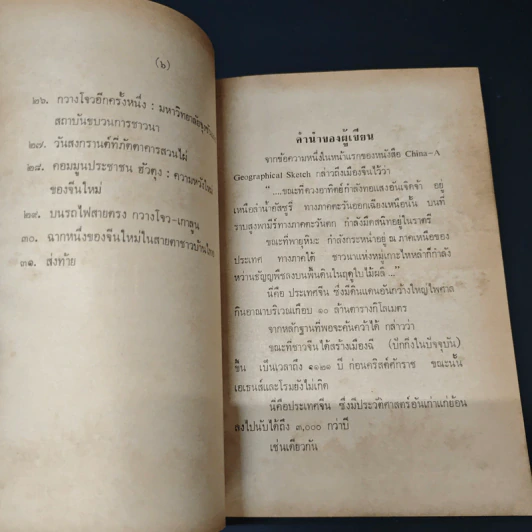 (๖)
๒๖. กวางโจวอีกครั้งหนึ่ง : มหาวิทยาลัยจุงซาน
สถาบันขบวนการชาวนา
๒๗. วันสงกรานต์ที่ภัตตาคารสวนไผ่
๒๘. คอมมูนประชาชน ฮัวตุง : ความหวังใหม่
ของจีนใหม่
๒๙. บนรถไฟสายตรง กวางโจว-เกาลูน
๓๐. ฉากหนึ่งของจีนใหม่ในสายตาชาวบ้าน
๓๑. ส่งท้าย
คำนำของผู้เขียน
จากข้อความหนึ่งในหน้าแรกของหนังสือ China-A
Geographical Sketch กล่าวถึงเมืองจีนไว้ว่า
"....ขณะที่ดวงอาทิตย์กำลังทอแสงอันเจิดจ้า อยู่
เหนือลำน้ำอัสซูรี่ ทางภาคตะวันออกเฉียงเหนือนั้น บนที่
ราบสูงพามีร์ทางภาคตะวันตก กำลังมืดสนิทอยู่ในราตรี
ขณะที่พายุหิมะ กำลังกระหน่ำอยู่ ณ ภาคเหนือของ
ประเทศ ทางภาคใต้ ชาวนาแห่งหมู่เกาะไหหลำก็กำลัง
หว่านธัญญพืชลงบนพื้นดินในฤดูใบไม้ผลิ ..."
นี่คือ ประเทศจีน ซึ่งมีดินแดนอันกว้างใหญ่ไพศาล
กินอาณาบริเวณเกือบ ๑๐ ล้านตารางกิโลเมตร
จากหลักฐานที่พอจะค้นคว้าได้ กล่าวว่า
ขณะที่ชาวจีนได้สร้างเมืองฉี (ปักกิ่งในปัจจุบัน)
ขึ้น เป็นเวลาถึง ๑๑๒๑ ปี ก่อนคริสต์ศักราช ขณะนั้น
เอเธนส์และโรมยังไม่เกิด
นี่คือประเทศจีน ซึ่งมีประวัติศาสตร์อันเก่าแก่ย้อน
ลงไปนับได้ถึง ๓,๐๐๐ กว่าปี
เช่นเดียวกัน